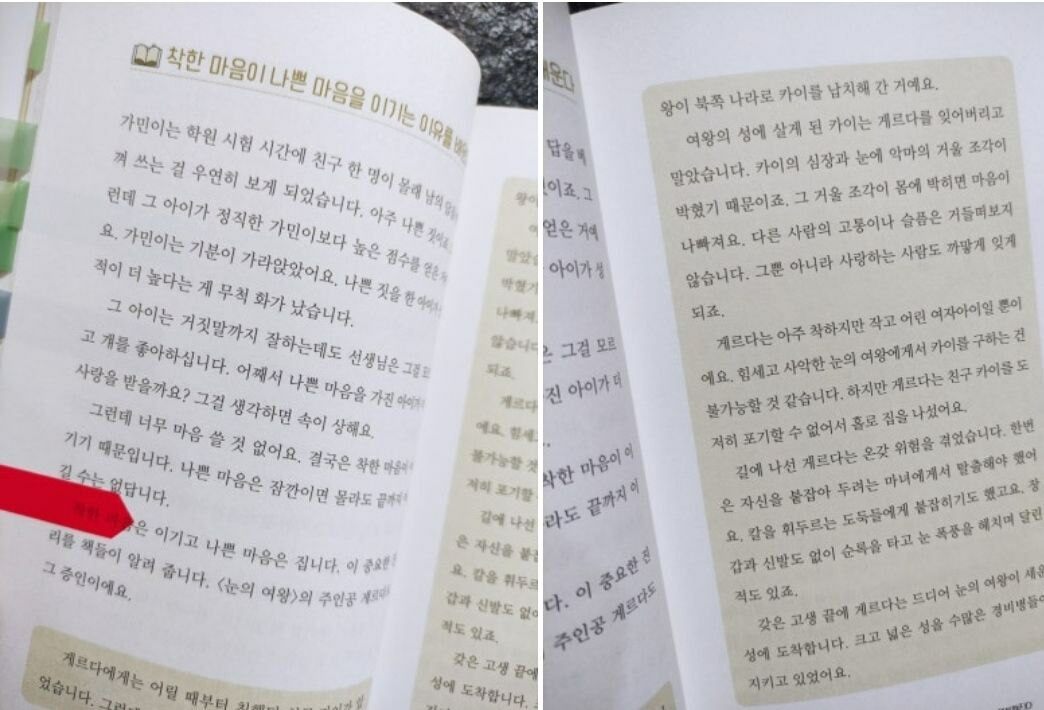 착한 마음이 나쁜 마음을 이기는 이유를
가민이는 학원 시험 시간에 친구 한 명이 몰래 남의
껴 쓰는 걸 우연히 보게 되었습니다. 아주 나쁜 짓이죠.
런데 그 아이가 정직한 가민이보다 높은 점수를 얻은
요. 가민이는 기분이 가라앉았어요. 나쁜 짓을 한 아이가
적이 더 높다는 게 무척 화가 났습니다.
그 아이는 거짓말까지 잘하는데도 선생님은 그걸 모르
고 걔를 좋아하십니다. 어째서 나쁜 마음을 가진 아이가
사랑을 받을까요? 그걸 생각하면 속이 상해요.
그런데 너무 마음 쓸 것 없어요. 결국은 착한 마음이
기기 때문입니다. 나쁜 마음은 잠깐이면 몰라도 끝까지
길 수는 없답니다.
착한 마음은 이기고 나쁜 마음은 집니다. 이 중요한
리를 책들이 알려 줍니다. 〈눈의 여왕〉의 주인공 게르다도
그 증인이에요.
게르다에게는 어릴 때부터
었습니다. 그런데
왕이
말았습
박혔기
나빠져
않습니다
되죠.
게르다
에요. 힘세
불가능할 것
저히 포기할
길에 나선
은 자신을 붙잡
요. 칼을 휘두르
갑과 신발도 없이
적도 있죠.
갖은 고생 끝에
성에 도착합니다.
답을 베
짓이죠. 그
얻은 거예
아이가 성
은 그걸 모르
진 아이가 더
착한 마음이 이
라도 끝까지 이
다. 이 중요한 진
주인공 게르다도
왕이 북쪽 나라로 카이를 납치해 간 거예요.
여왕의 성에 살게 된 카이는 게르다를 잊어버리고
말았습니다. 카이의 심장과 눈에 악마의 거울 조각이
박혔기 때문이죠. 그 거울 조각이 몸에 박히면 마음이
나빠져요. 다른 사람의 고통이나 슬픔은 거들떠보지
않습니다. 그뿐 아니라 사랑하는 사람도 까맣게 잊게
되죠.
게르다는 아주 착하지만 작고 어린 여자아이일 뿐이
에요. 힘세고 사악한 눈의 여왕에게서 카이를 구하는 건
불가능할 것 같습니다. 하지만 게르다는 친구 카이를 도
저히 포기할 수 없어서 홀로 집을 나섰어요.
길에 나선 게르다는 온갖 위험을 겪었습니다. 한번
은 자신을 붙잡아 두려는 마녀에게서 탈출해야 했어
요. 칼을 휘두르는 도둑들에게 붙잡히기도 했고요. 장
갑과 신발도 없이 순록을 타고 눈 폭풍을 헤치며 달린
적도 있죠.
갖은 고생 끝에 게르다는 드디어 눈의 여왕이 세운
성에 도착합니다. 크고 넓은 성을 수많은 경비병들이
지키고 있었어요.